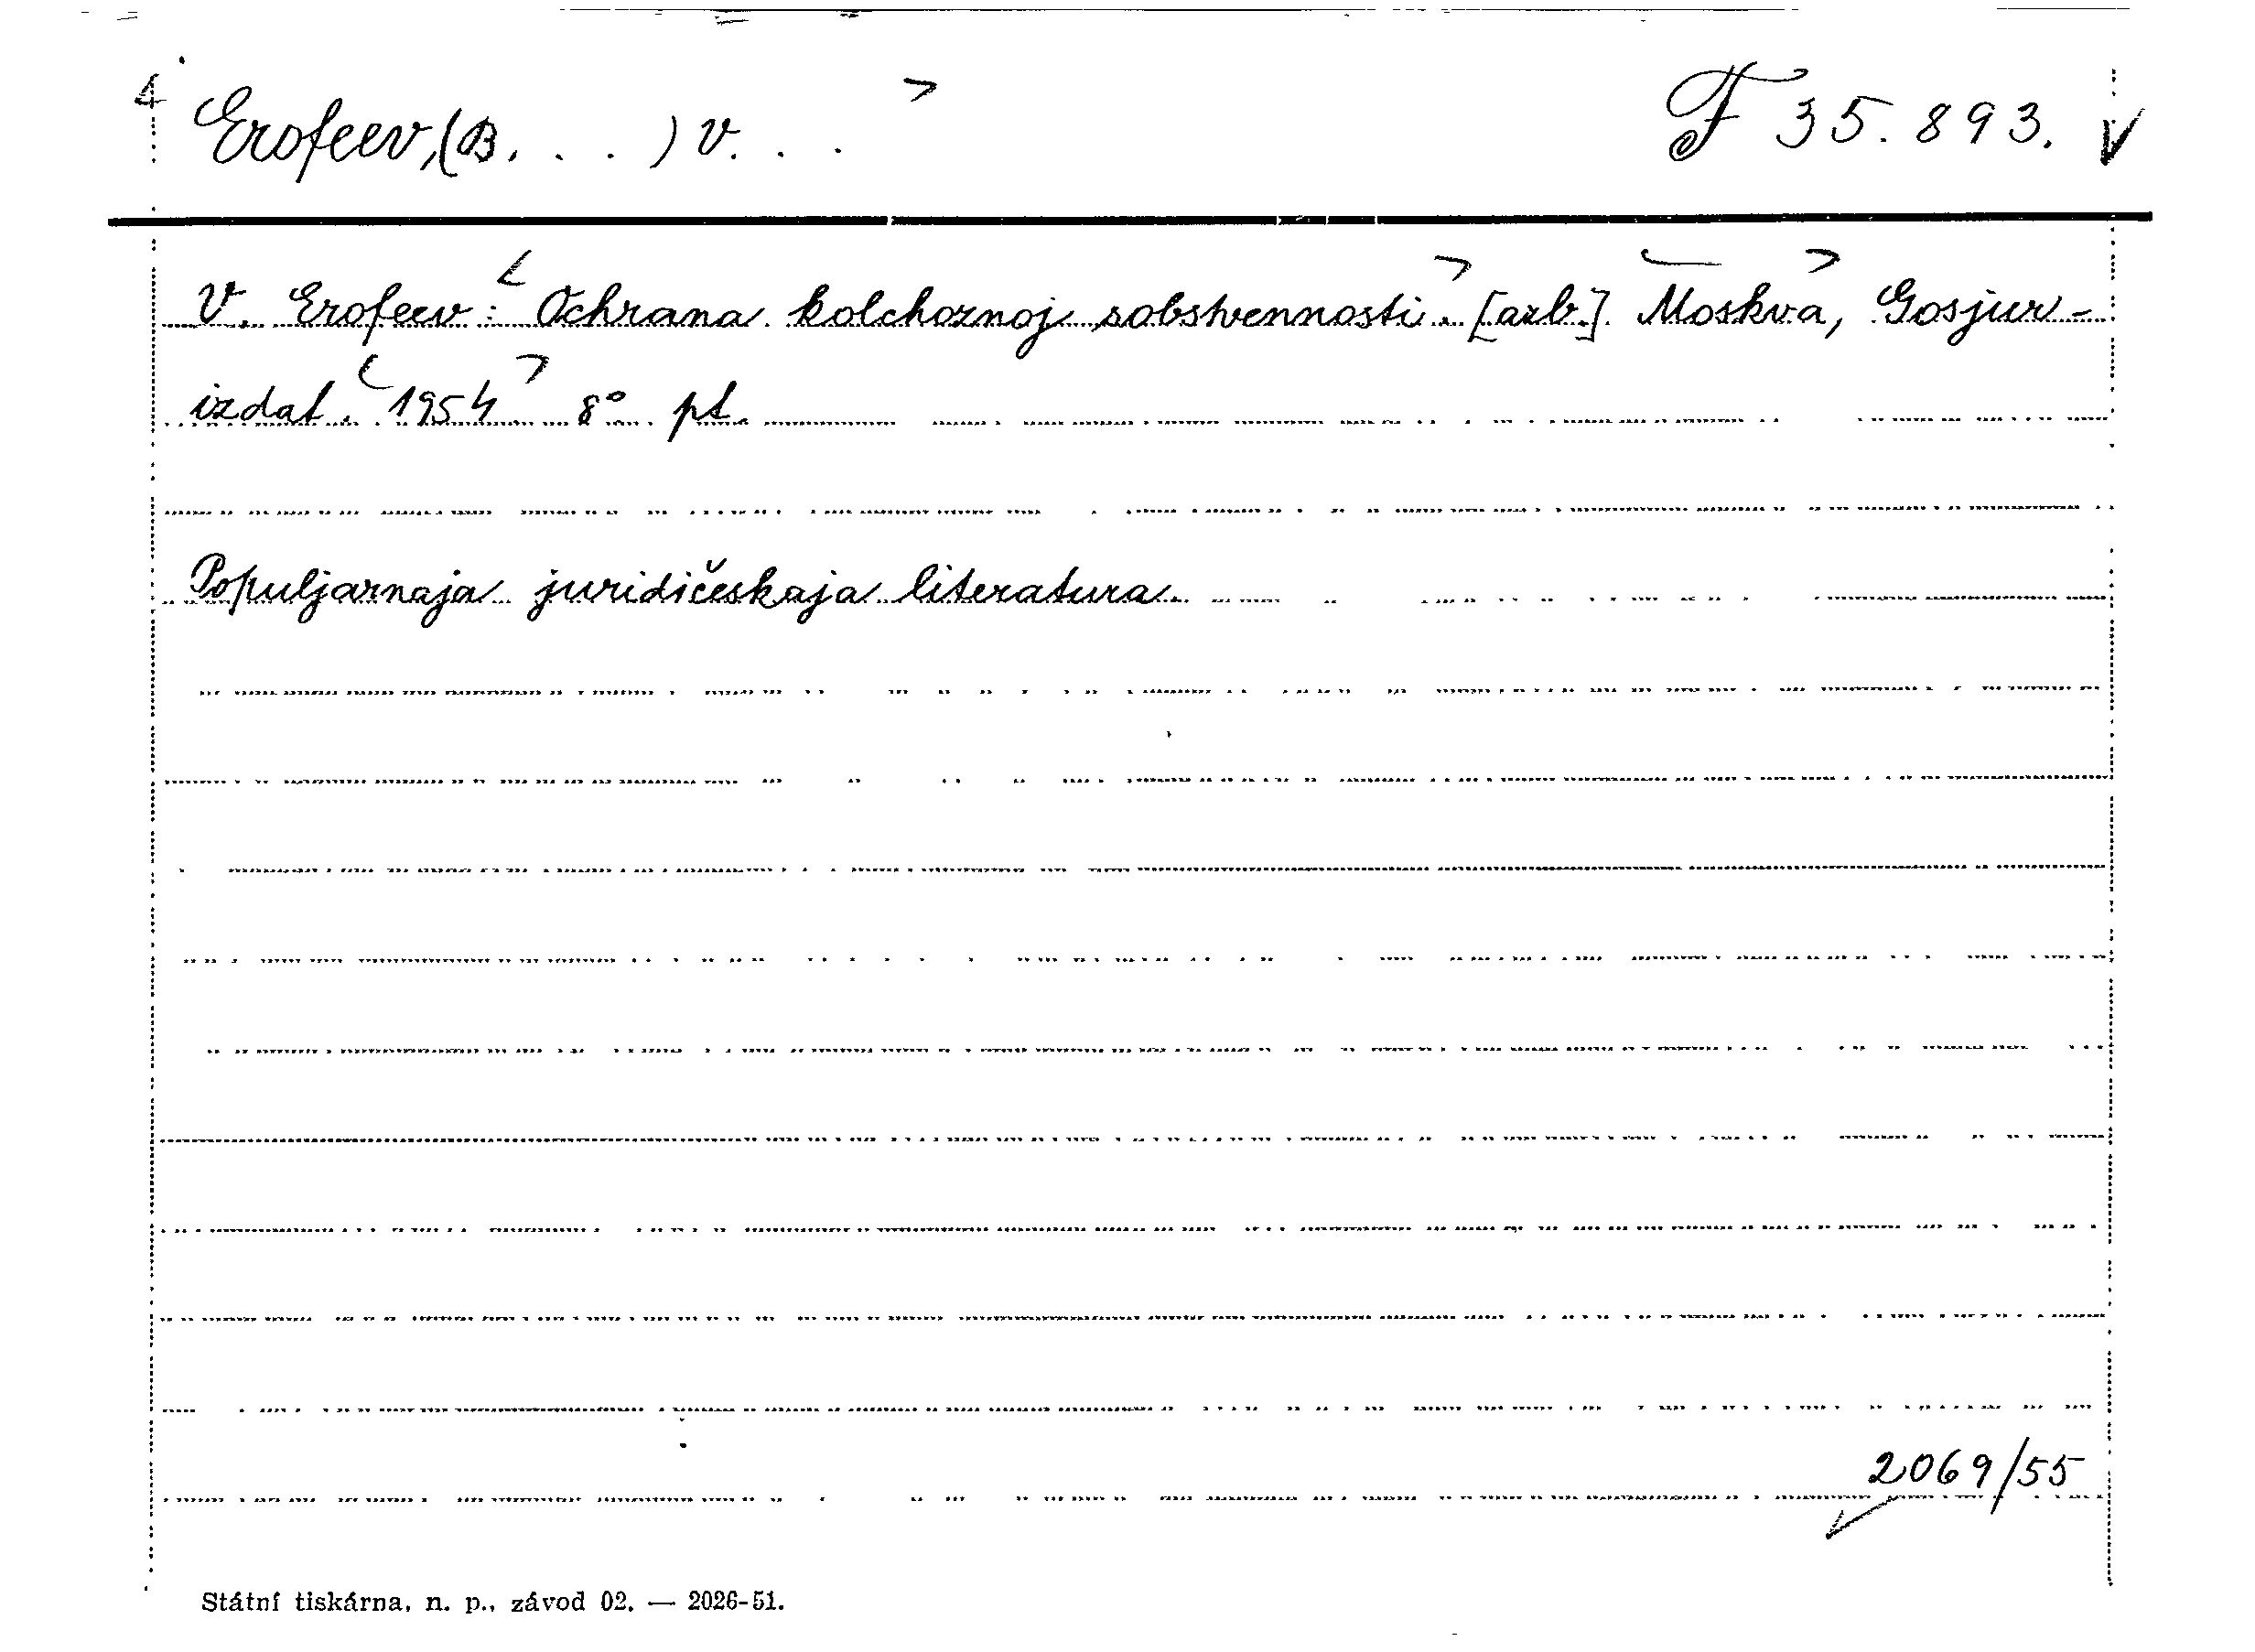 Erofeev, (B. . . ) V. . . F 35.893.
V. Erofeev: Ochrana kolchoznoj sobstvennosti. [azb.] Moskva, Gosjur-
izdat. 1954 8° pt.
Populjarnaja juridičeskaja literatura.
2069/55
Státní tiskárna, n. p., závod 02. — 2026-51.